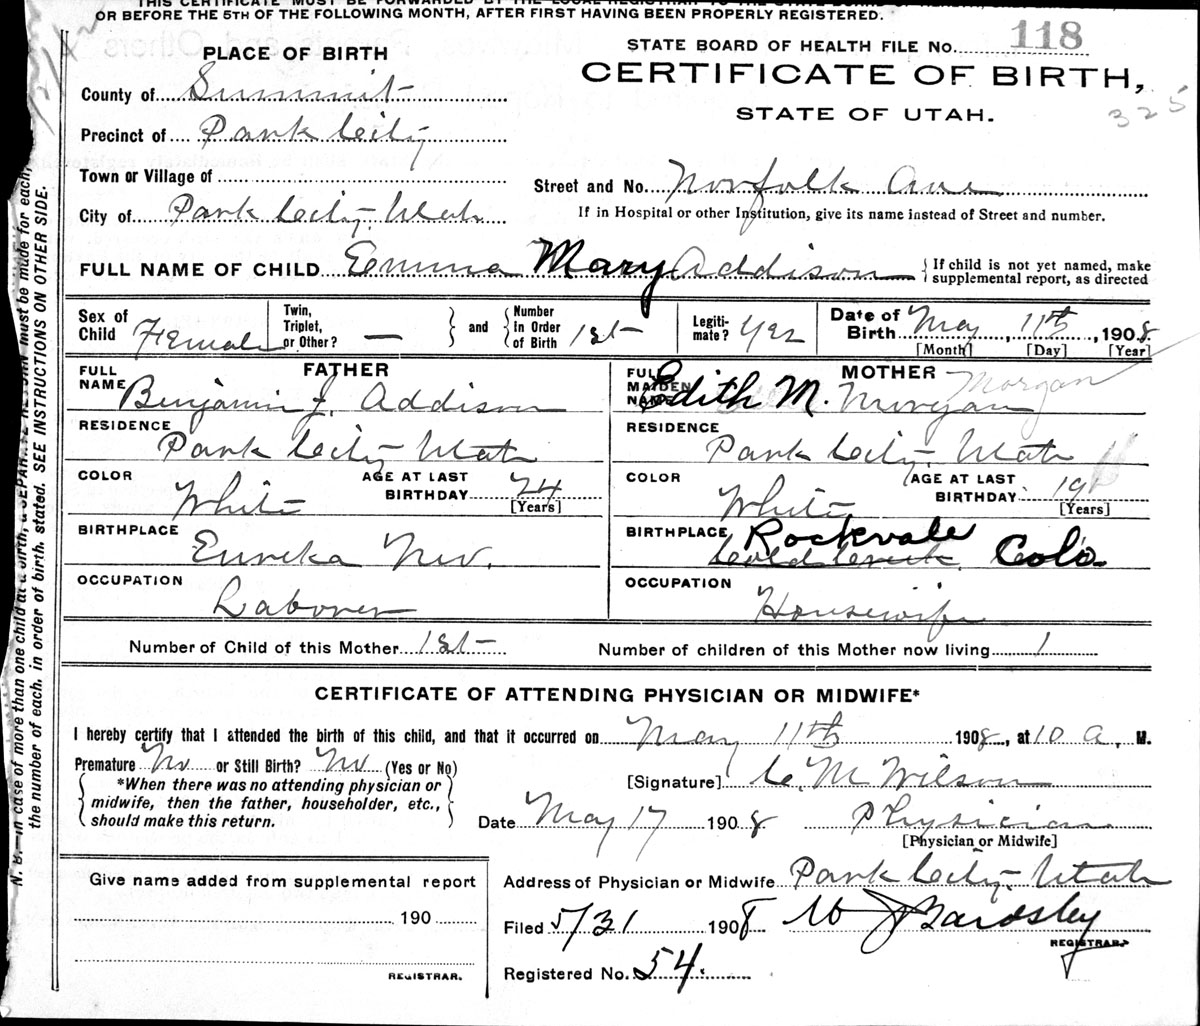 OR BEFORE THE 5TH OF THE FOLLOWING MONTH, AFTER FIRST HAVING BEEN PROPERLY REGISTERED.
STATE BOARD OF HEALTH FILE No. 118
PLACE OF BIRTH
CERTIFICATE OF BIRTH,
STATE OF UTAH.
325
County of Summit
Precinct of Park City
Town or Village of
Street and No. Norfolk Ave
City of Park City, Utah
If in Hospital or other Institution, give its name instead of Street and number.
FULL NAME OF CHILD Emma Mary Addison
If child is not yet named, make supplemental report, as directed
Sex of Child Female
Twin, Triplet, or Other? —
and Number in Order of Birth 1st
Legitimate? Yes
Date of Birth May 11th, 1908
[Month] [Day] [Year]
FATHER
FULL NAME Benjamin J. Addison
RESIDENCE Park City Utah
COLOR White
AGE AT LAST BIRTHDAY 24 [Years]
BIRTHPLACE Eureka Nev.
OCCUPATION Laborer
MOTHER
FULL MAIDEN NAME Edith M. Morgan Morgan
RESIDENCE Park City, Utah
COLOR White
AGE AT LAST BIRTHDAY 19 [Years]
BIRTHPLACE Rockvale Colo
OCCUPATION Housewife
Number of Child of this Mother 1st
Number of children of this Mother now living 1
CERTIFICATE OF ATTENDING PHYSICIAN OR MIDWIFE*
I hereby certify that I attended the birth of this child, and that it occurred on May 11th 1908, at 10 a. M.
Premature No or Still Birth? No (Yes or No)
*When there was no attending physician or
midwife, then the father, householder, etc.,
should make this return.
[Signature] C. M. Wilson
Date May 17 1908 Physician
[Physician or Midwife]
Give name added from supplemental report
190
REGISTRAR.
Address of Physician or Midwife Park City, Utah
Filed 5/31 1908 W J Bardsley
REGISTRAR.
Registered No. 54.
N. B.—In case of more than one child at a birth, a SEPARATE RETURN must be made for each,
the number of each, in order of birth, stated. SEE INSTRUCTIONS ON OTHER SIDE.